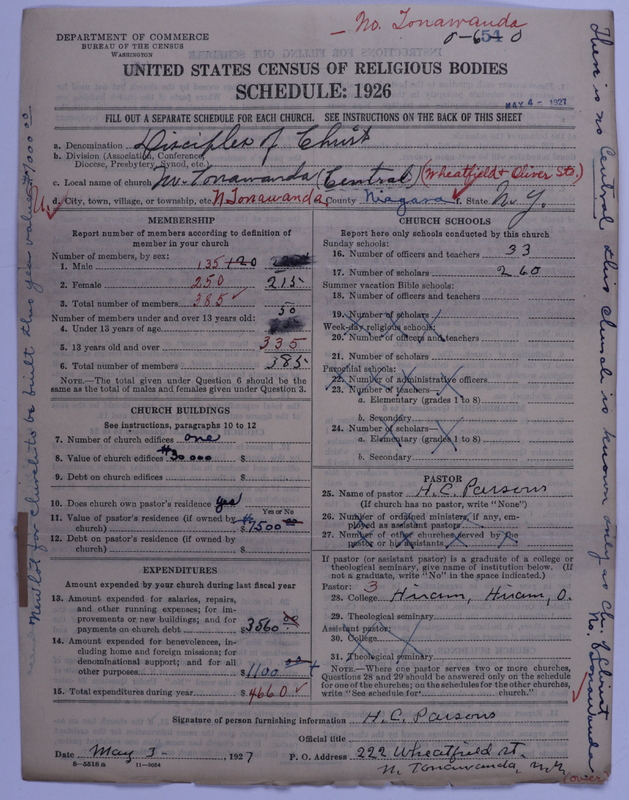 — No. Tonawanda
DEPARTMENT OF COMMERCE
BUREAU OF THE CENSUS
WASHINGTON
UNITED STATES CENSUS OF RELIGIOUS BODIES
SCHEDULE: 1926
MAY 4 - 1927
FILL OUT A SEPARATE SCHEDULE FOR EACH CHURCH. SEE INSTRUCTIONS ON THE BACK OF THIS SHEET
a. Denomination Disciples of Christ
b. Division (Association, Conference, Diocese, Presbytery, Synod, etc.)
c. Local name of church No. Tonawanda (Central) (Wheatfield & Oliver Sts.)
d. City, town, village, or township, etc. N. Tonawanda County Niagara f. State N. Y.
MEMBERSHIP
Report number of members according to definition of
member in your church
Number of members, by sex:
1. Male 135 + 20
2. Female 250 215
3. Total number of members 385 ✓
50
Number of members under and over 13 years old:
4. Under 13 years of age
5. 13 years old and over 335
6. Total number of members 385
NOTE.—The total given under Question 6 should be
same as the total of males and females given under Question 3.
CHURCH BUILDINGS
See instructions, paragraphs 10 to 12
7. Number of church edifices one
8. Value of church edifices $30 000 $
9. Debt on church edifices $
10. Does church own pastor's residence yes
Yes or No
11. Value of pastor's residence (if owned by
church) $7500 00
12. Debt on pastor's residence (if owned by
church) $
EXPENDITURES
Amount expended by your church during last fiscal year
13. Amount expended for salaries, repairs,
and other running expenses; for im-
provements or new buildings; and for
payments on church debt $3560 00
14. Amount expended for benevolences, in-
cluding home and foreign missions; for
denominational support; and for all
other purposes $1100 00
15. Total expenditures during year $4660 ✓
CHURCH SCHOOLS
Report here only schools conducted by this church
Sunday schools:
16. Number of officers and teachers 33
17. Number of scholars 260
Summer vacation Bible schools:
18. Number of officers and teachers
19. Number of scholars
Week-day religious schools:
20. Number of officers and teachers
21. Number of scholars
Parochial schools:
22. Number of administrative officers
23. Number of teachers—
a. Elementary (grades 1 to 8)
b. Secondary
24. Number of scholars—
a. Elementary (grades 1 to 8)
b. Secondary
PASTOR
25. Name of pastor H. C. Parsons
(If church has no pastor, write "None")
26. Number of ordained ministers, if any, em-
ployed as assistant pastors
27. Number of other churches served by the
pastor or his assistants
If pastor (or assistant pastor) is a graduate of a college or
theological seminary, give name of institution below. (If
not a graduate, write "No" in the space indicated.)
Pastor: 3
28. College Hiram, Hiram, O.
29. Theological seminary
Assistant pastor:
30. College
31. Theological seminary
NOTE.—Where one pastor serves two or more churches,
Questions 28 and 29 should be answered only on the schedule
for one of the churches; on the schedules for the other churches,
write "See schedule for church."
Signature of person furnishing information H. C. Parsons
Official title
Date May 3 - , 1927 P. O. Address 222 Wheatfield St.
N. Tonawanda, N.Y.
8—5518a 11—9084
(over)
There is no Central this church is known only as Ch. of Christ
No. Tonawanda
New lot for church to be built this year value $7000 00